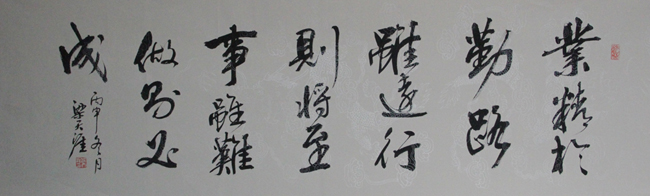 業精於
勤路
雖遠行
則將至
事雖難
做則必
成
丙申冬月